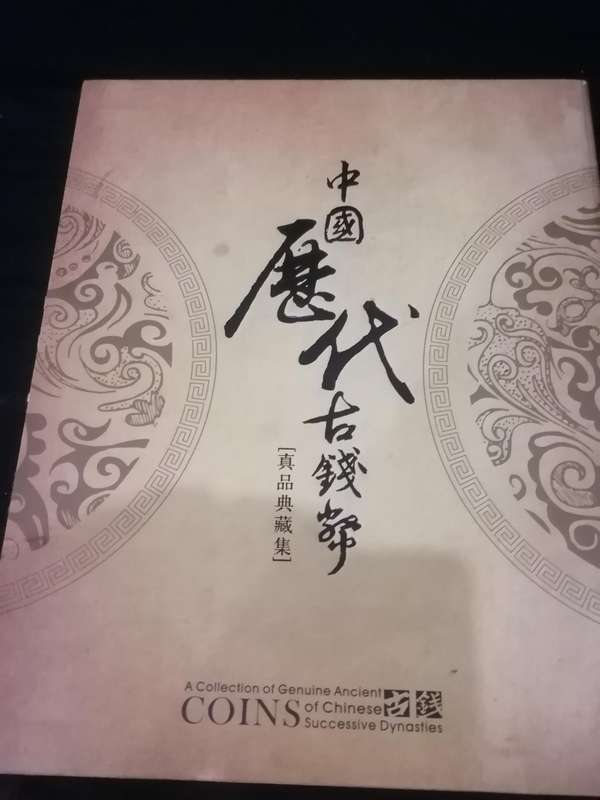 中國歷代古錢幣
[真品典藏集]
A Collection of Genuine Ancient
COINS of Chinese
Successive Dynasties
古錢